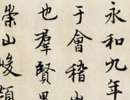 永和九年
于會稽山
也羣賢畢
崇山峻領